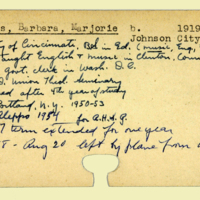 s, Barbara, Marjorie b. 1919
Johnson City
y of Cincinnati. BS in Ed. (music, Eng.
aught English & music in Clinton, Conn
govt. clerk in Wash. D.C.
Union Theol. Seminary
ad after 4th year of study
Portland, N.Y. 1950-53
Aleppo 1954 for A.H.S.
7 term extended for one year
8 - Aug 20 left by plane from